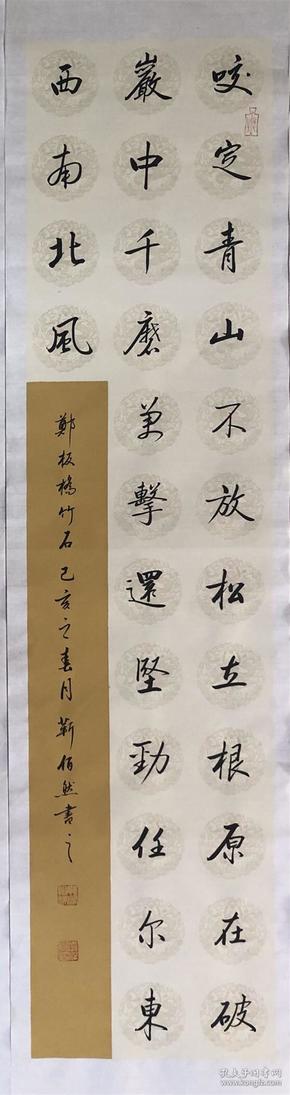 咬定青山不放松立根原在破
巖中千磨万擊還堅勁任尔東
西南北風
鄭板橋竹石己亥之春月靳佰然書之
孔夫子旧书网